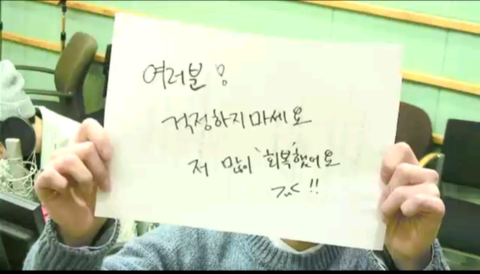 여러분!
걱정하지마세요
저 많이 '회복'했어요
>.< !!